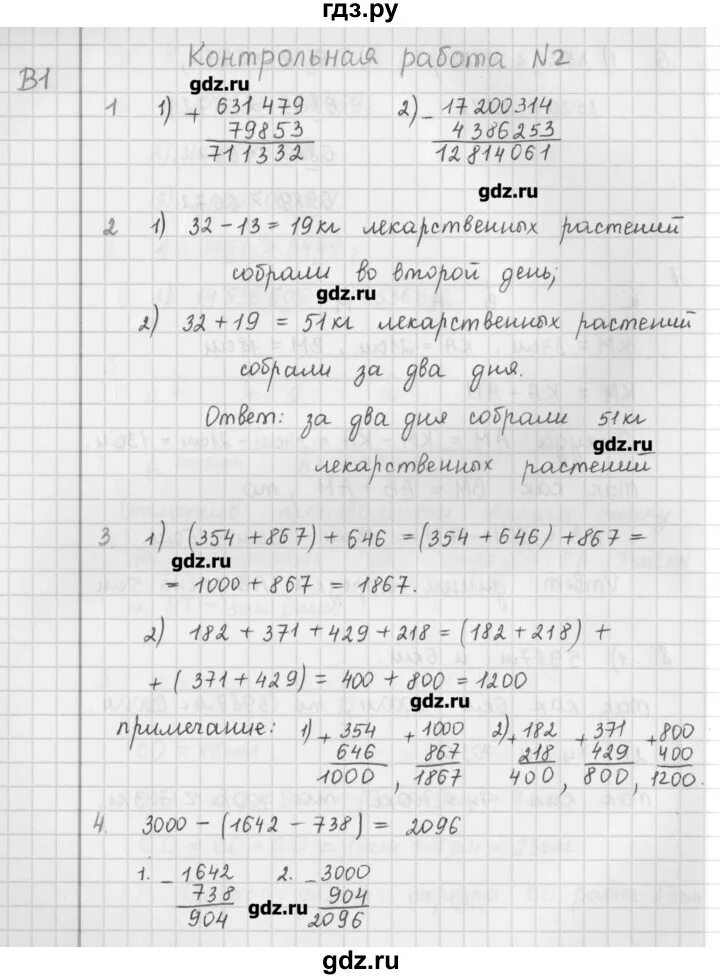 гдз.ру
Контрольная работа N2
В1
gdz.ru
1 1) + 631479 2) - 17200314
79853 4386253
711332 12814061
gdz.ru
2 1) 32 - 13 = 19 кг лекарственных растений
собрали во второй день;
gdz.ru
2) 32 + 19 = 51 кг лекарственных растений
собрали за два дня.
Ответ: за два дня собрали 51 кг
gdz.ru
лекарственных растений
3 1) (354 + 867) + 646 = (354 + 646) + 867 =
gdz.ru
= 1000 + 867 = 1867.
2) 182 + 371 + 429 + 218 = (182 + 218) +
+ (371 + 429) = 400 + 800 = 1200
gdz.ru
примечание: 1) + 354 + 1000 2) + 182 + 371 + 800
646 867 218 429 400
1000 , 1867 400 , 800 , 1200.
4. 3000 - (1642 - 738) = 2096
1. - 1642 2. - 3000
738 904
904 2096
gdz.ru
gdz.ru